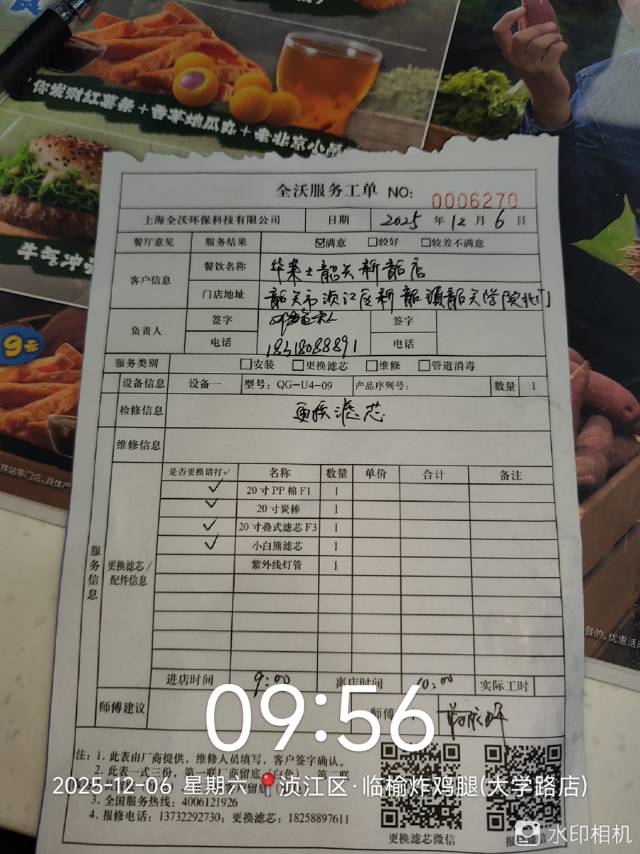 你发财红薯条+香芋地瓜丸+老北京小吊
牛气冲
9元
全沃服务工单 NO: 0006270
上海全沃环保科技有限公司 日期 2025 年 12 月 6 日
餐厅意见 服务结果 ☑满意 □较好 □较差不满意
客户信息 餐饮名称 华莱士韶关新韶店
门店地址 韶关市浈江区新韶镇韶关学院北门
负责人 签字 签字
电话 18318088891 电话
服务类别 □安装 □更换滤芯 □维修 □管道消毒
设备信息 设备一 型号: QG-U4-09 产品序列号: 数量 1
检修信息 更换滤芯
维修信息
服务信息 更换滤芯/配件信息
是否更换请打✓ 名称 数量 单价 合计 备注
✓ 20寸PP棉F1 1
✓ 20寸炭棒 1
✓ 20寸叠式滤芯F3 1
✓ 小白熊滤芯 1
紫外线灯管 1
进店时间 9:00 离店时间 10:00 实际工时
师傅建议 师傅
09:56
注: 1. 此表由厂商提供, 维修人员填写, 客户签字确认。
2. 此表一式三份, 第一联厂商留底(白色)、第二联
2025-12-06 星期六 浈江区·临榆炸鸡腿(大学路店)
3. 全国服务热线: 4006121926
4. 报修电话: 13732292730; 更换滤芯: 18258897611
更换滤芯微信
水印相机